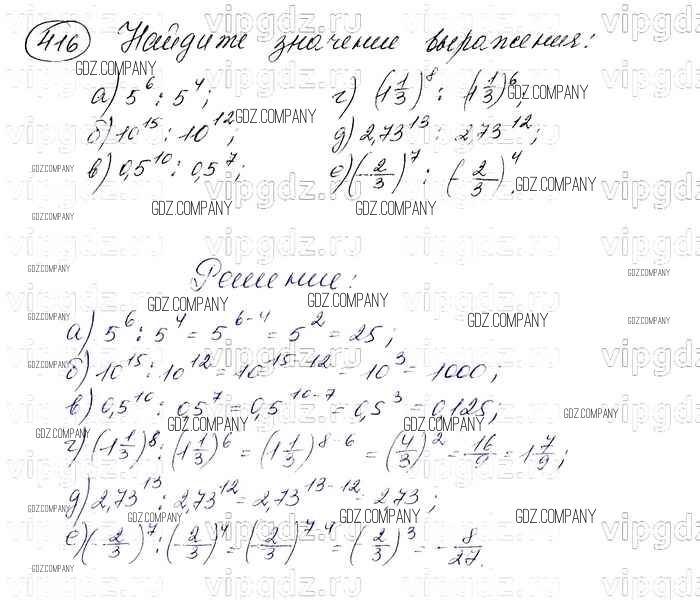 416 Найдите значение выражения:
а) 5⁶ : 5⁴; г) (1 1/3)⁸ : (1 1/3)⁶;
б) 10¹⁵ : 10¹²; д) 2,73¹³ : 2,73¹²;
в) 0,5¹⁰ : 0,5⁷; е) (-2/3)⁷ : (-2/3)⁴.
Решение:
а) 5⁶ : 5⁴ = 5⁶⁻⁴ = 5² = 25;
б) 10¹⁵ : 10¹² = 10¹⁵⁻¹² = 10³ = 1000;
в) 0,5¹⁰ : 0,5⁷ = 0,5¹⁰⁻⁷ = 0,5³ = 0,125;
г) (1 1/3)⁸ : (1 1/3)⁶ = (1 1/3)⁸⁻⁶ = (4/3)² = 16/9 = 1 7/9;
д) 2,73¹³ : 2,73¹² = 2,73¹³⁻¹² = 2,73;
е) (-2/3)⁷ : (-2/3)⁴ = (-2/3)⁷⁻⁴ = (-2/3)³ = -8/27.
GDZ.COMPANY
vipgdz.ru